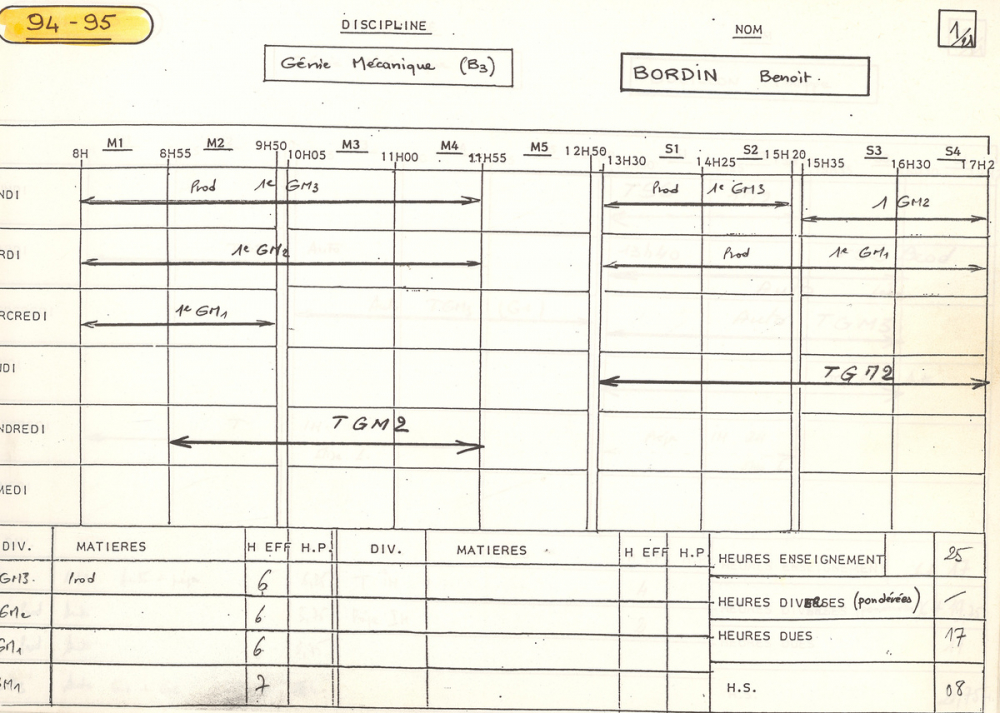 94-95
DISCIPLINE
NOM
1/
Génie Mécanique (B3)
BORDIN Benoit.
M1 M2 M3 M4 M5 S1 S2 S3 S4
8H 8H55 9H50 10H05 11H00 11H55 12H50 13H30 14H25 15H20 15H35 16H30 17H2
NDI Prod 1e GM3 Prod 1e GM3
1 GM2
RDI 1e GM2 Prod 1e GM1
RCREDI 1e GM1
UDI TG M2
NDREDI TGM2
MEDI
DIV. MATIERES H EFF H.P. DIV. MATIERES H EFF H.P. HEURES ENSEIGNEMENT 25
GM3. Prod 6
HEURES DIVERSES (pondérées) –
GM2 6
HEURES DUES 17
GM1 6
GM1 7
H.S. 08